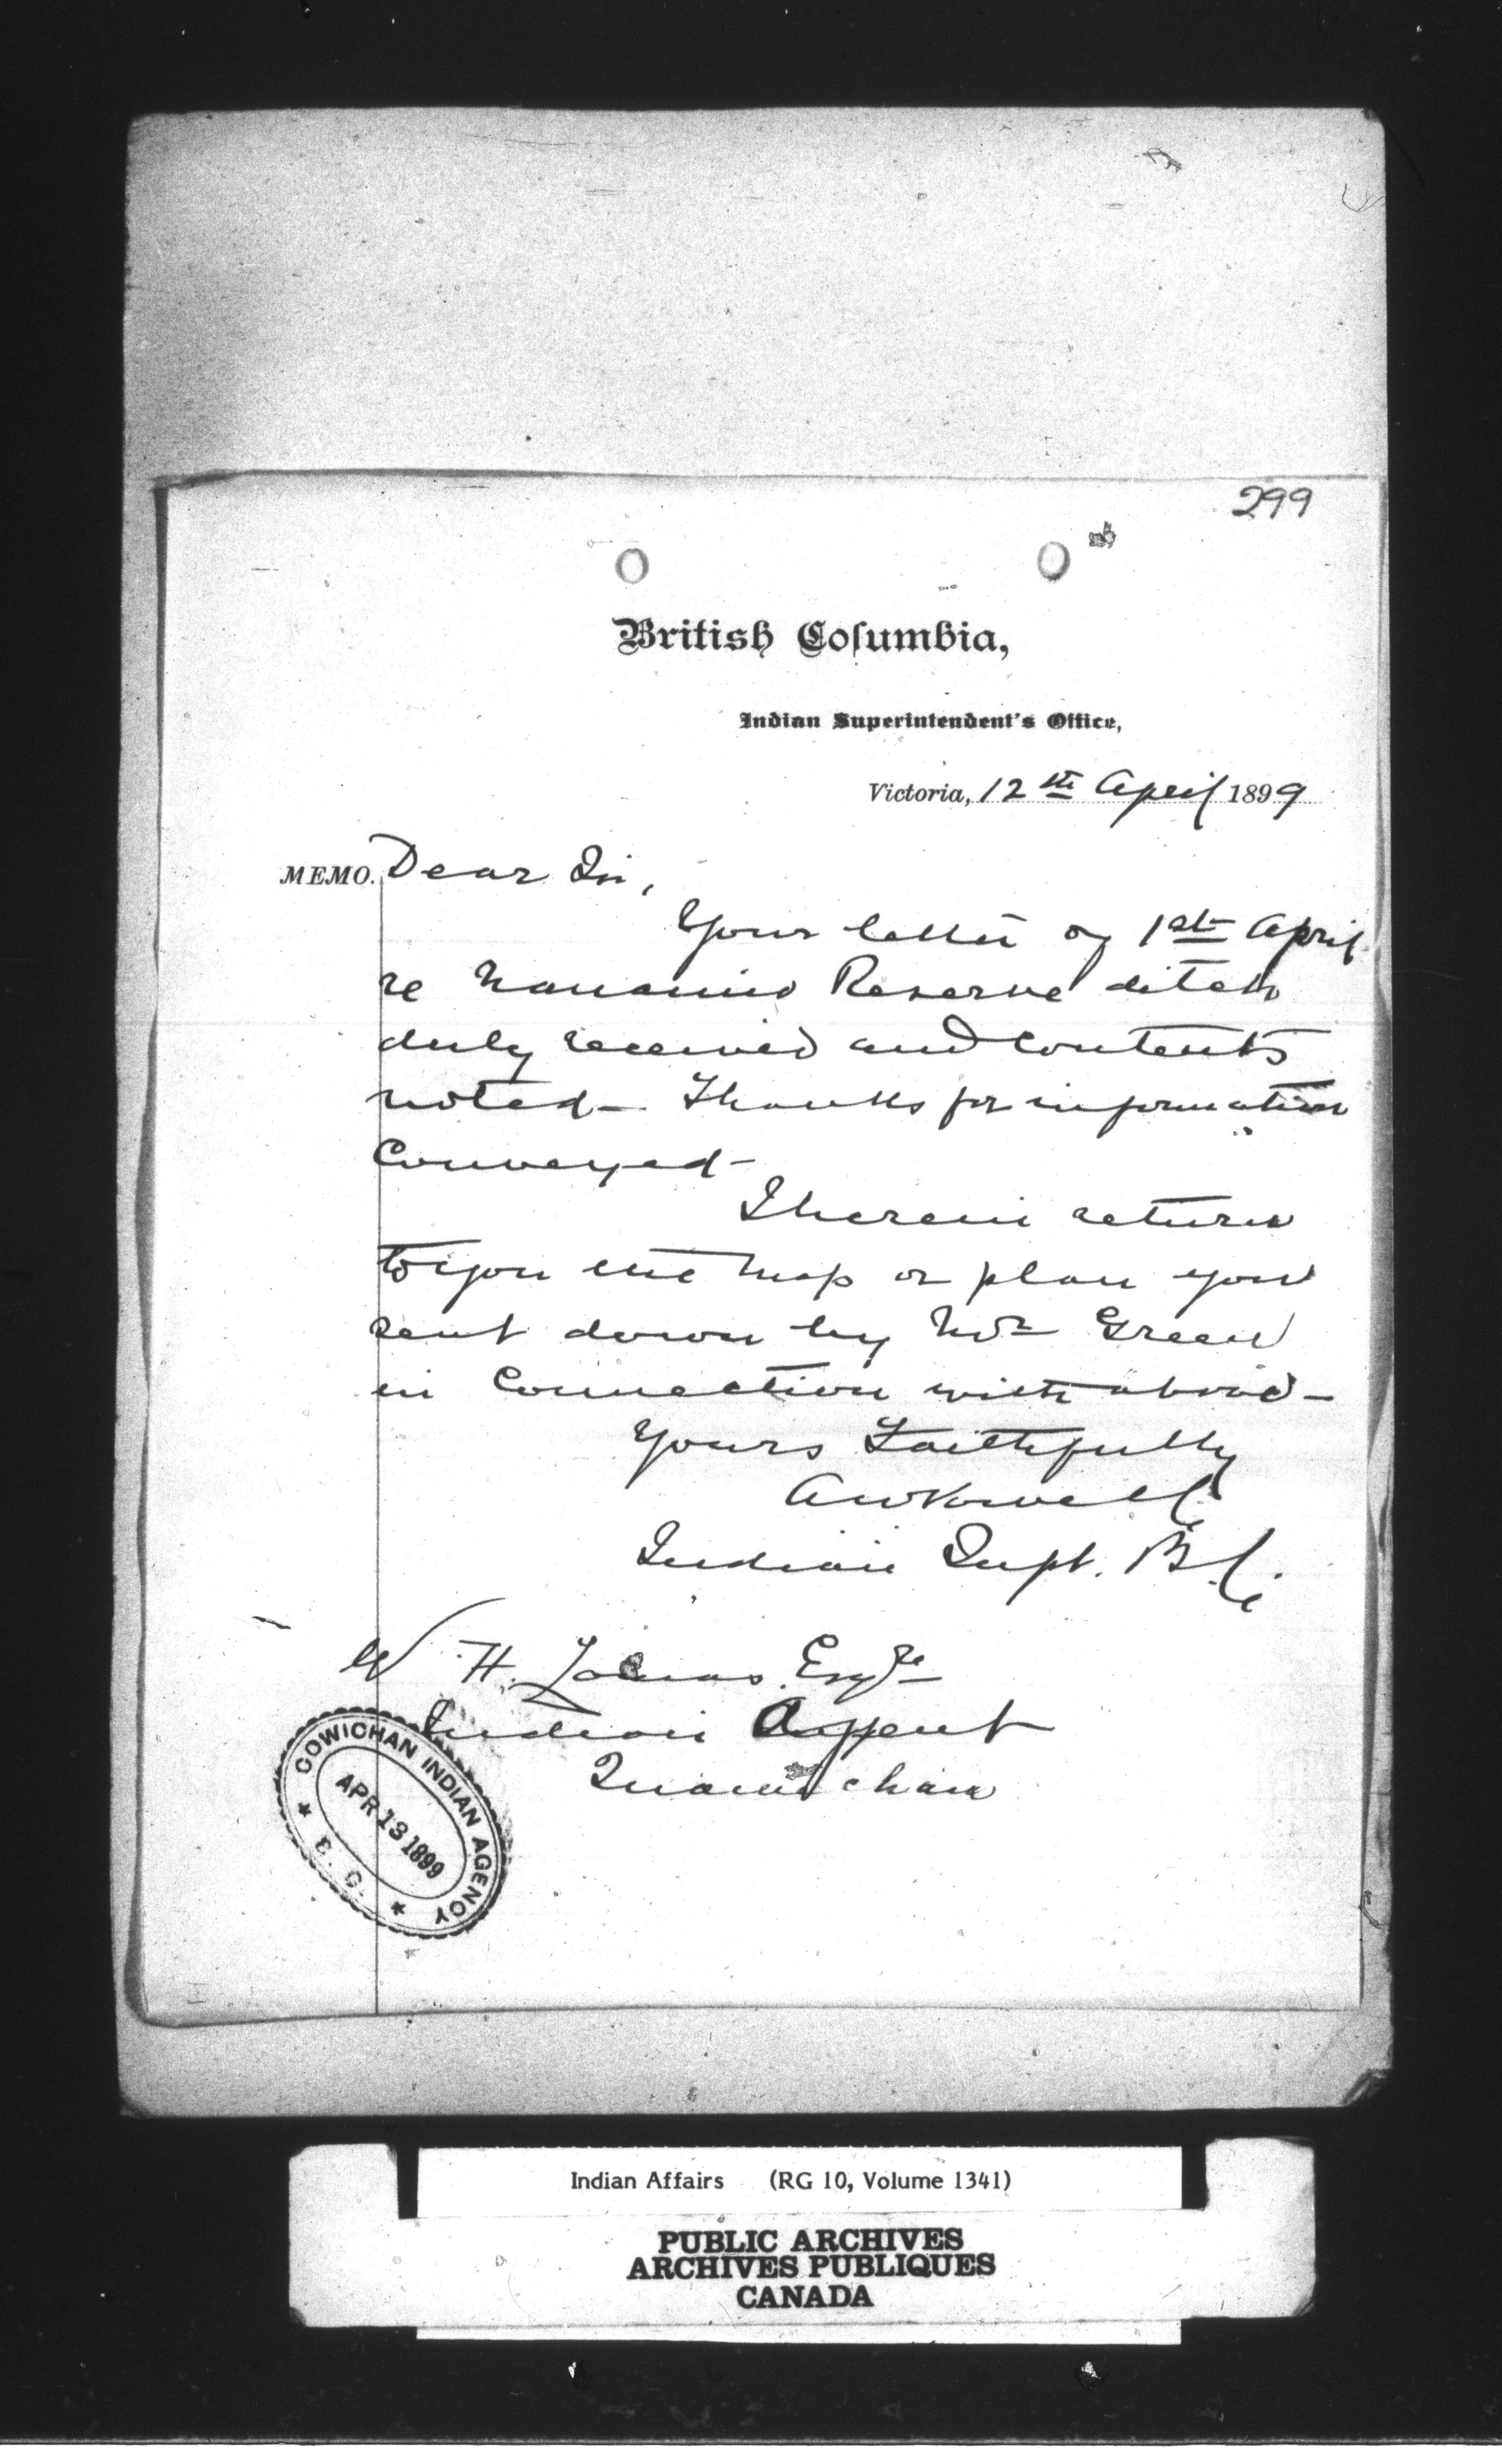 299
British Columbia,
Indian Superintendent's Office,
Victoria, 12th April 1899
MEMO. Dear Sir,
Your letter of 1st April
re Nanaimo Reserve ditch
duly received and contents
noted - Thanks for information
Conveyed -
I herein return
to you the map or plan you
sent down by Mr Green
in Connection with above -
Yours Faithfully
A W Vowell
Indian Supt. B.C.
W. H. Lomas Esqre
Indian Agent
Quamichan
COWICHAN INDIAN AGENCY
APR 13 1899
B. C.
Indian Affairs (RG 10, Volume 1341)
PUBLIC ARCHIVES
ARCHIVES PUBLIQUES
CANADA